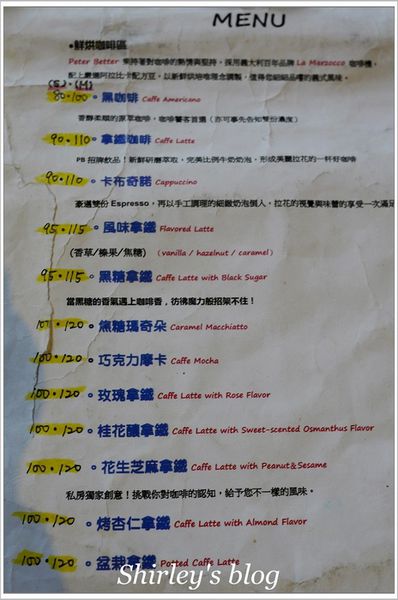 MENU
•鮮烘咖啡區
Peter Better 秉持著對咖啡的熱情與堅持，採用義大利百年品牌 La Marzocco 咖啡機，
配上嚴選阿拉比卡配方豆，以新鮮烘焙唯理念調製，值得您細細品嚐的義式風味。
(S) (M)
80·100 黑咖啡 Caffe Americano
香醇柔順的原萃咖啡，咖啡饕客首選（亦可事先告知幫份濃度）
90·110 拿鐵咖啡 Caffe Latte
PB 招牌飲品！新鮮研磨萃取，完美比例牛奶奶泡，形成美麗拉花的一杯好咖啡
90·110 卡布奇諾 Cappuccino
嚴選雙份 Espresso，再以手工調理的細緻奶泡倒入，拉花的視覺與味蕾的享受一次滿足
95·115 風味拿鐵 Flavored Latte
(香草/榛果/焦糖) (vanilla / hazelnut / caramel)
95·115 黑糖拿鐵 Caffe Latte with Black Sugar
當黑糖的香氣遇上咖啡香，彷彿魔力般招架不住！
100·120 焦糖瑪奇朵 Caramel Macchiato
100·120 巧克力摩卡 Caffe Mocha
100·120 玫瑰拿鐵 Caffe Latte with Rose Flavor
100·120 桂花釀拿鐵 Caffe Latte with Sweet-scented Osmanthus Flavor
100·120 花生芝麻拿鐵 Caffe Latte with Peanut&Sesame
私房獨家創意！挑戰你對咖啡的認知，給予您不一樣的風味。
100·120 烤杏仁拿鐵 Caffe Latte with Almond Flavor
100·120 盆栽拿鐵 Potted Caffe Latte
Shirley's blog